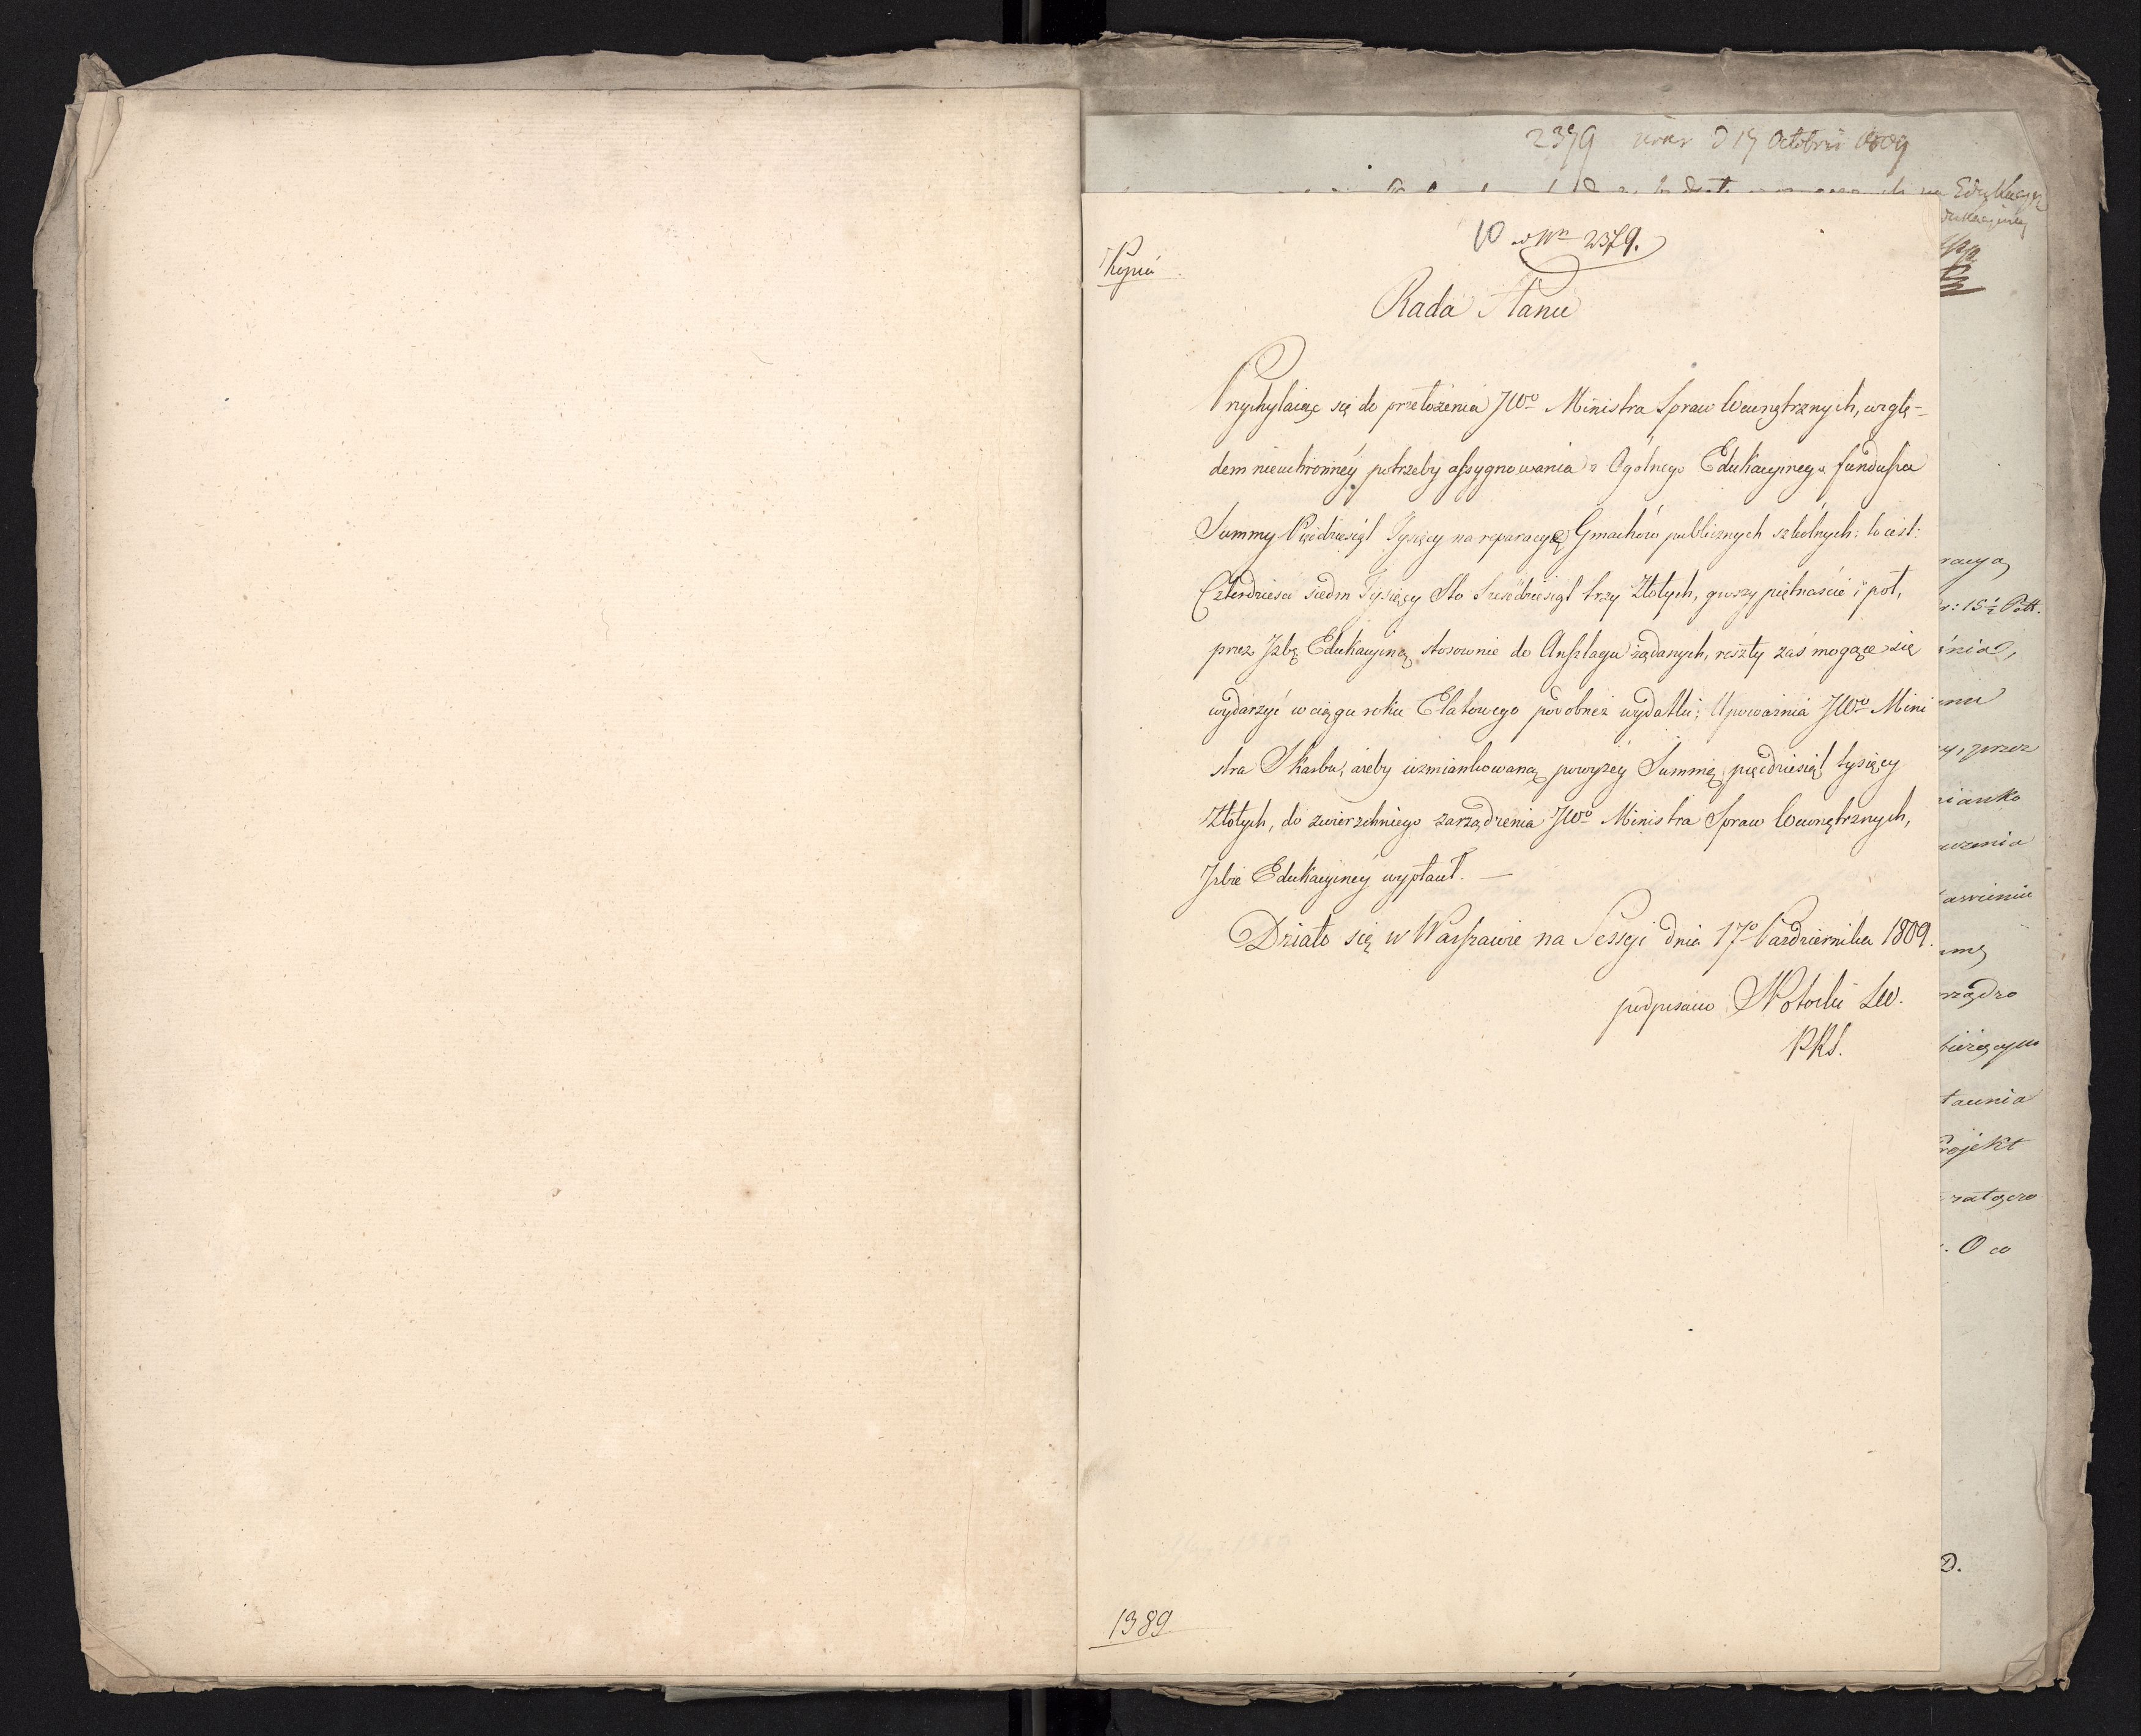 2379 d 17 Octobris 1809
Edukacyi
10 ad Nrm 2379.
Kopia
Rada Stanu
Przychylaiąc się do przełożenia JWo Ministra Spraw Wewnętrznych, wzglę-
dem nieuchronnéy potrzeby assygnowania z Ogólnego Edukacyinego funduszu
Summy Pięćdziesiąt Tysięcy na reparacyą Gmachów publicznych szkólnych: to iest:
Czterdzieści siedm Tysięcy Sto Sześćdziesiąt trzy Złotych, groszy piętnaście i pół,
przez Izbę Edukacyiną stosownie do Anszlagu żądanych, reszty zaś mogące się
wydarzyć w ciągu roku Etatowego podobnéż wydatki; Upoważnia JWo Mini
stra Skarbu, ażeby wzmiankowaną powyżéy Summę pięćdziesiąt tysięcy
Złotych, do zwierzchniego zarządzenia JWo Ministra Spraw Wewnętrznych,
Izbie Edukacyinéy wypłacił. —
Działo się w Warszawie na Sessyi dnia 17o Października 1809.
podpisano SPotocki SW.
PRS.
racyą
gr: 15½ Pol.
ania,
emu
ey, przez
mianko
awienie
rządze
bieżącym
łacenia
Projekt
załącze
. O co
D.
1389.